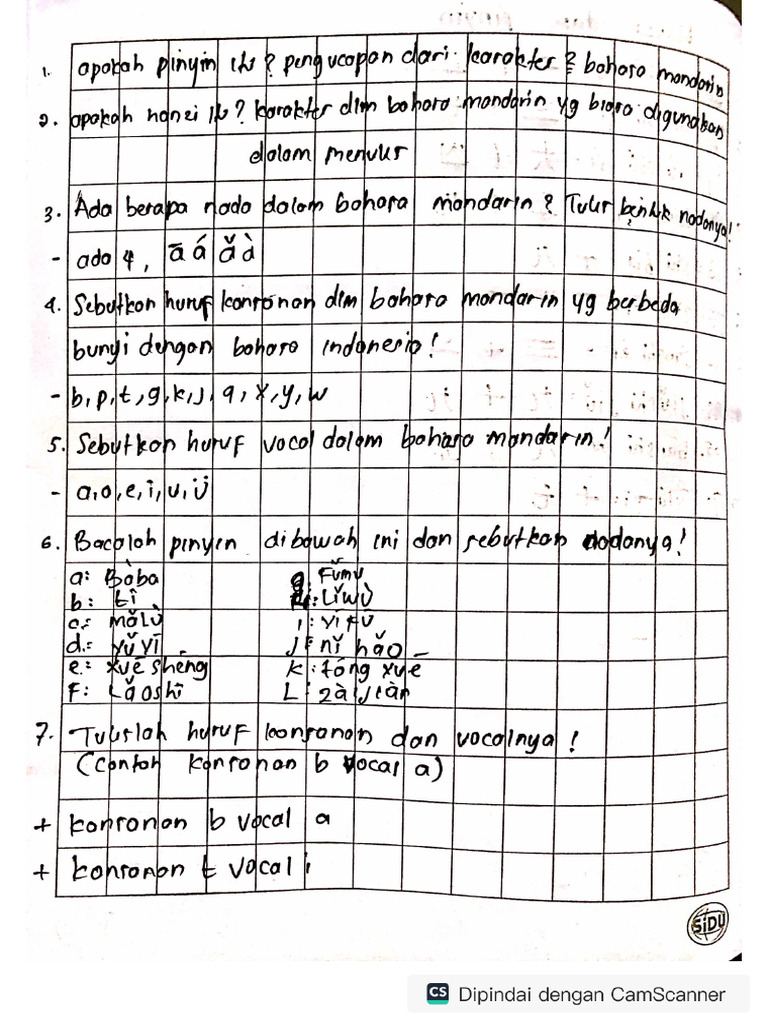 1. apakah pinyin itu? pengucapan dari karakter2 bahasa mandarin
2. apakah hanzi itu? karakter dlm bahasa mandarin yg biasa digunakan
dalam menulis
3. Ada berapa nada dalam bahasa mandarin? Tulis bentuk nadanya!
- ada 4, ā á ǎ à
4. Sebutkan huruf konsonan dlm bahasa mandarin yg berbeda
bunyi dengan bahasa indonesia!
- b, p, t, g, k, j, q, x, y, w
5. Sebutkan huruf vocal dalam bahasa mandarin!
- a, o, e, i, u, ü
6. Bacalah pinyin dibawah ini dan sebutkan nadanya!
a: Bàba g. Fǔmǔ
b: tǐ h: Lǐwù
c: mǎlù i: yīfú
d: yǔyī J: nǐ hǎo
e: xué shēng K: tóng xué
F: Lǎoshī L: zàijiàn
7. Tulislah huruf konsonan dan vocalnya!
(contoh konsonan b vocal a)
+ konsonan b vocal a
+ konsonan t vocal i
SiDU
CS Dipindai dengan CamScanner